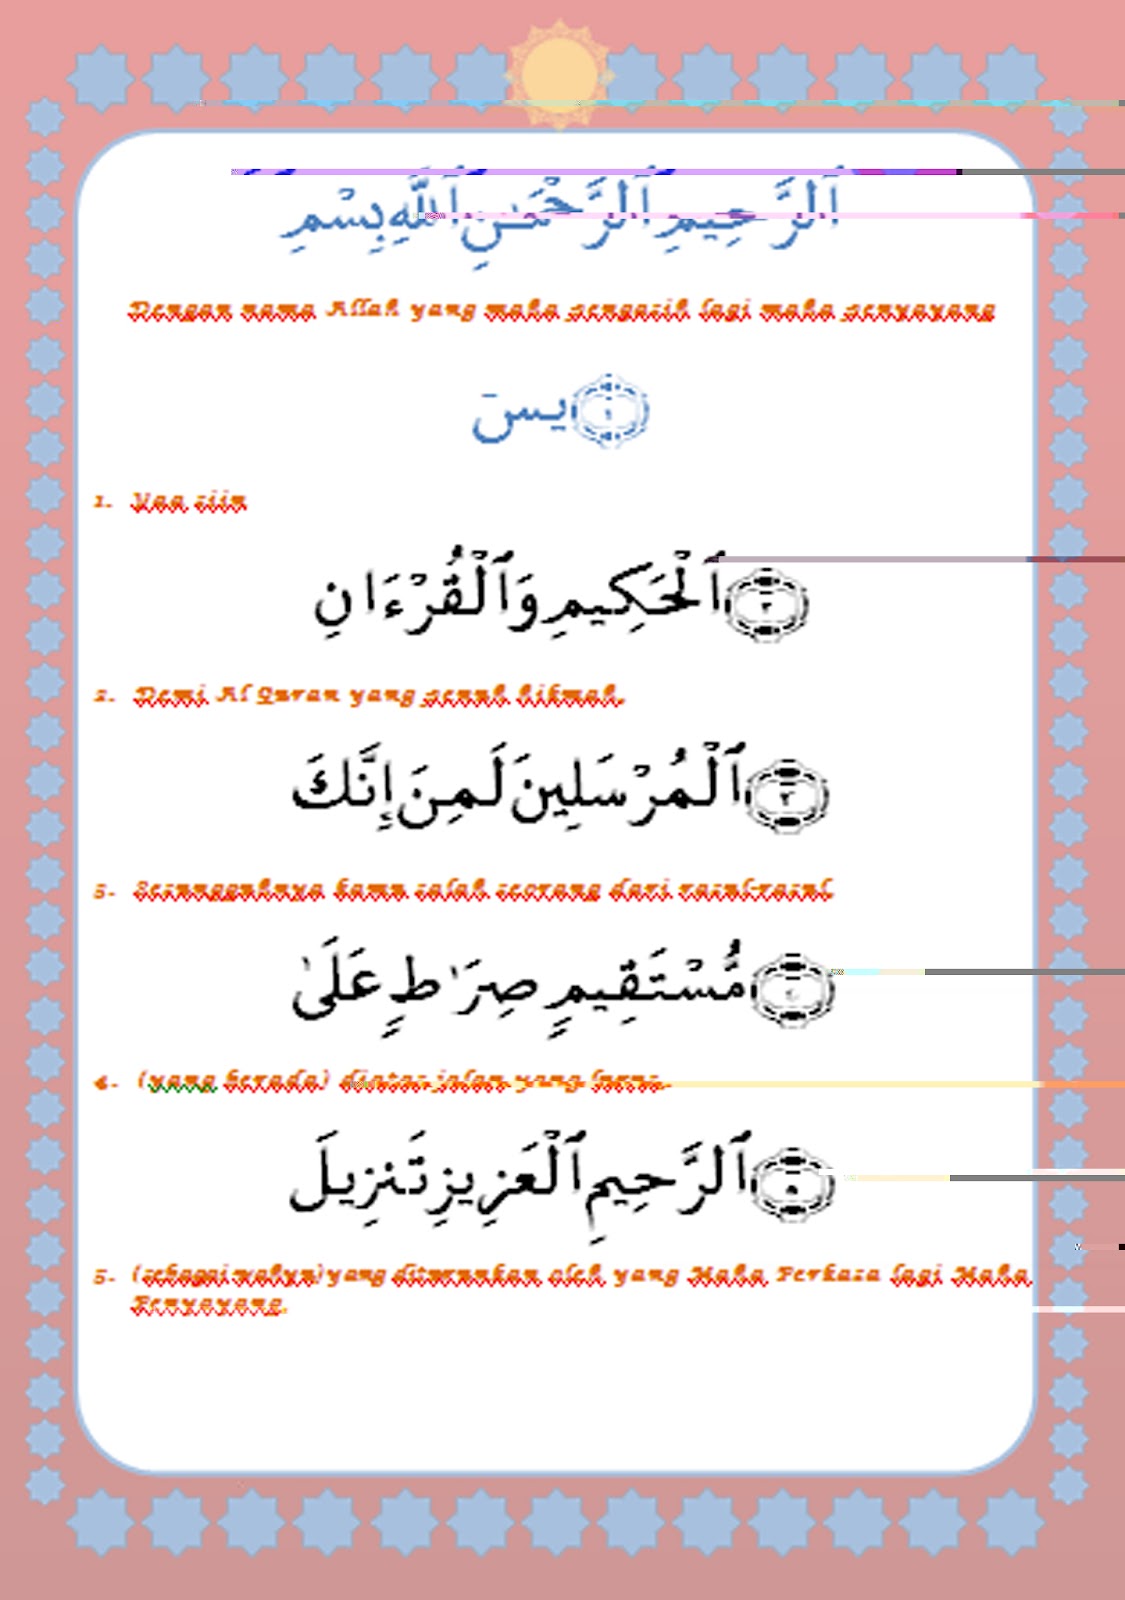 ٱلرَّحِيمِ ٱلرَّحْمَـٰنِ ٱللَّهِ بِسْمِ
Dengan nama Allah yang maha pengasih lagi maha penyayang
﴿١﴾ يسٓ
1. Yaa siin
﴿٢﴾ ٱلْحَكِيمِ وَٱلْقُرْءَانِ
2. Demi Al Quran yang penuh hikmah,
﴿٣﴾ ٱلْمُرْسَلِينَ لَمِنَ إِنَّكَ
3. Sesungguhnya kamu salah seorang dari rasul-rasul,
﴿٤﴾ مُّسْتَقِيمٍ صِرَٰطٍ عَلَىٰ
4. (yang berada) diatas jalan yang lurus,
﴿٥﴾ ٱلرَّحِيمِ ٱلْعَزِيزِ تَنزِيلَ
5. (sebagai wahyu) yang diturunkan oleh yang Maha Perkasa lagi Maha
Penyayang.